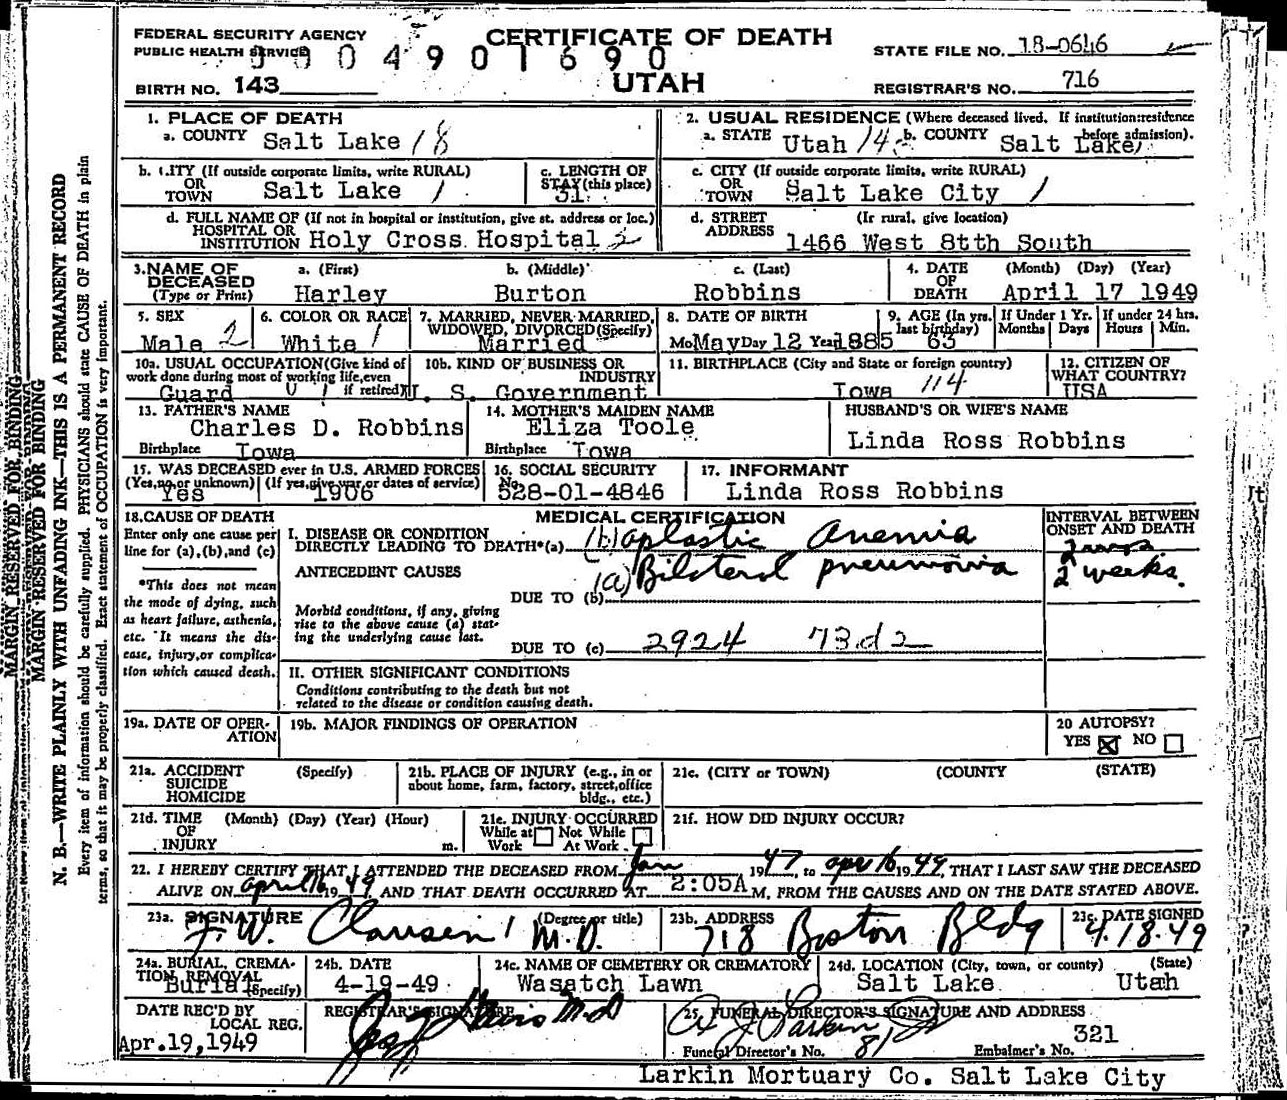 FEDERAL SECURITY AGENCY
PUBLIC HEALTH SERVICE
CERTIFICATE OF DEATH
0 4 9 0 1 6 9 0
STATE FILE NO. 18-0646
BIRTH NO. 143
UTAH
REGISTRAR'S NO. 716
1. PLACE OF DEATH
a. COUNTY Salt Lake 18
2. USUAL RESIDENCE (Where deceased lived. If institution:residence before admission).
a. STATE Utah 143 b. COUNTY Salt Lake
b. CITY (If outside corporate limits, write RURAL) OR TOWN Salt Lake 1
c. LENGTH OF STAY (this place) 31
c. CITY (If outside corporate limits, write RURAL) OR TOWN Salt Lake City 1
d. FULL NAME OF (If not in hospital or institution, give st. address or loc.) HOSPITAL OR INSTITUTION Holy Cross Hospital 2
d. STREET ADDRESS (If rural, give location) 1466 West 8tth South
3. NAME OF DECEASED (Type or Print)
a. (First) Harley
b. (Middle) Burton
c. (Last) Robbins
4. DATE OF DEATH (Month) (Day) (Year) April 17 1949
5. SEX Male 2
6. COLOR OR RACE White 1
7. MARRIED, NEVER MARRIED, WIDOWED, DIVORCED (Specify) Married
8. DATE OF BIRTH Mo May Day 12 Year 1885
9. AGE (In yrs. last birthday) 63
If Under 1 Yr. Months Days
If under 24 hrs. Hours Min.
10a. USUAL OCCUPATION (Give kind of work done during most of working life, even if retired) Guard
10b. KIND OF BUSINESS OR INDUSTRY U. S. Government
11. BIRTHPLACE (City and State or foreign country) Iowa 114
12. CITIZEN OF WHAT COUNTRY? USA
13. FATHER'S NAME Charles D. Robbins
Birthplace Iowa
14. MOTHER'S MAIDEN NAME Eliza Toole
Birthplace Iowa
HUSBAND'S OR WIFE'S NAME
Linda Ross Robbins
15. WAS DECEASED ever in U.S. ARMED FORCES
(Yes, no or unknown) Yes (If yes, give war or dates of service) 1906
16. SOCIAL SECURITY No. 528-01-4846
17. INFORMANT
Linda Ross Robbins
18. CAUSE OF DEATH
Enter only one cause per line for (a), (b), and (c)
*This does not mean the mode of dying, such as heart failure, asthenia, etc. It means the disease, injury, or complication which caused death.
MEDICAL CERTIFICATION
INTERVAL BETWEEN ONSET AND DEATH
I. DISEASE OR CONDITION DIRECTLY LEADING TO DEATH*(a) (b) aplastic anemia
ANTECEDENT CAUSES
DUE TO (b) (a) Bilateral pneumonia 2 weeks.
Morbid conditions, if any, giving rise to the above cause (a) stating the underlying cause last.
DUE TO (c) 2924 73d2
II. OTHER SIGNIFICANT CONDITIONS
Conditions contributing to the death but not related to the disease or condition causing death.
19a. DATE OF OPERATION
19b. MAJOR FINDINGS OF OPERATION
20 AUTOPSY?
YES ☒ NO ☐
21a. ACCIDENT SUICIDE HOMICIDE (Specify)
21b. PLACE OF INJURY (e.g., in or about home, farm, factory, street, office bldg., etc.)
21c. (CITY or TOWN) (COUNTY (STATE)
21d. TIME OF INJURY (Month) (Day) (Year) (Hour) m.
21e. INJURY OCCURRED While at Work ☐ Not While At Work ☐
21f. HOW DID INJURY OCCUR?
22. I HEREBY CERTIFY THAT I ATTENDED THE DECEASED FROM Jan 1947, to apr 16 1949, THAT I LAST SAW THE DECEASED
ALIVE ON april 16 1949 AND THAT DEATH OCCURRED AT 2:05A M, FROM THE CAUSES AND ON THE DATE STATED ABOVE.
23a. SIGNATURE (Degree or title) F. W. Clausen M.D.
23b. ADDRESS 718 Boston Bldg
23c. DATE SIGNED 4.18.49
24a. BURIAL, CREMATION, REMOVAL (Specify) Burial
24b. DATE 4-19-49
24c. NAME OF CEMETERY OR CREMATORY Wasatch Lawn
24d. LOCATION (City, town, or county) (State) Salt Lake Utah
DATE REC'D BY LOCAL REG. Apr.19,1949
REGISTRAR'S SIGNATURE
25. FUNERAL DIRECTOR'S SIGNATURE AND ADDRESS
Funeral Director's No. 81
Embalmer's No. 321
Larkin Mortuary Co. Salt Lake City
MARGIN RESERVED FOR BINDING
MARGIN RESERVED FOR BINDING
N. B.—WRITE PLAINLY WITH UNFADING INK—THIS IS A PERMANENT RECORD
Every item of information should be carefully supplied. PHYSICIANS should state CAUSE OF DEATH in plain
terms, so that it may be properly classified. Exact statement of OCCUPATION is very important.